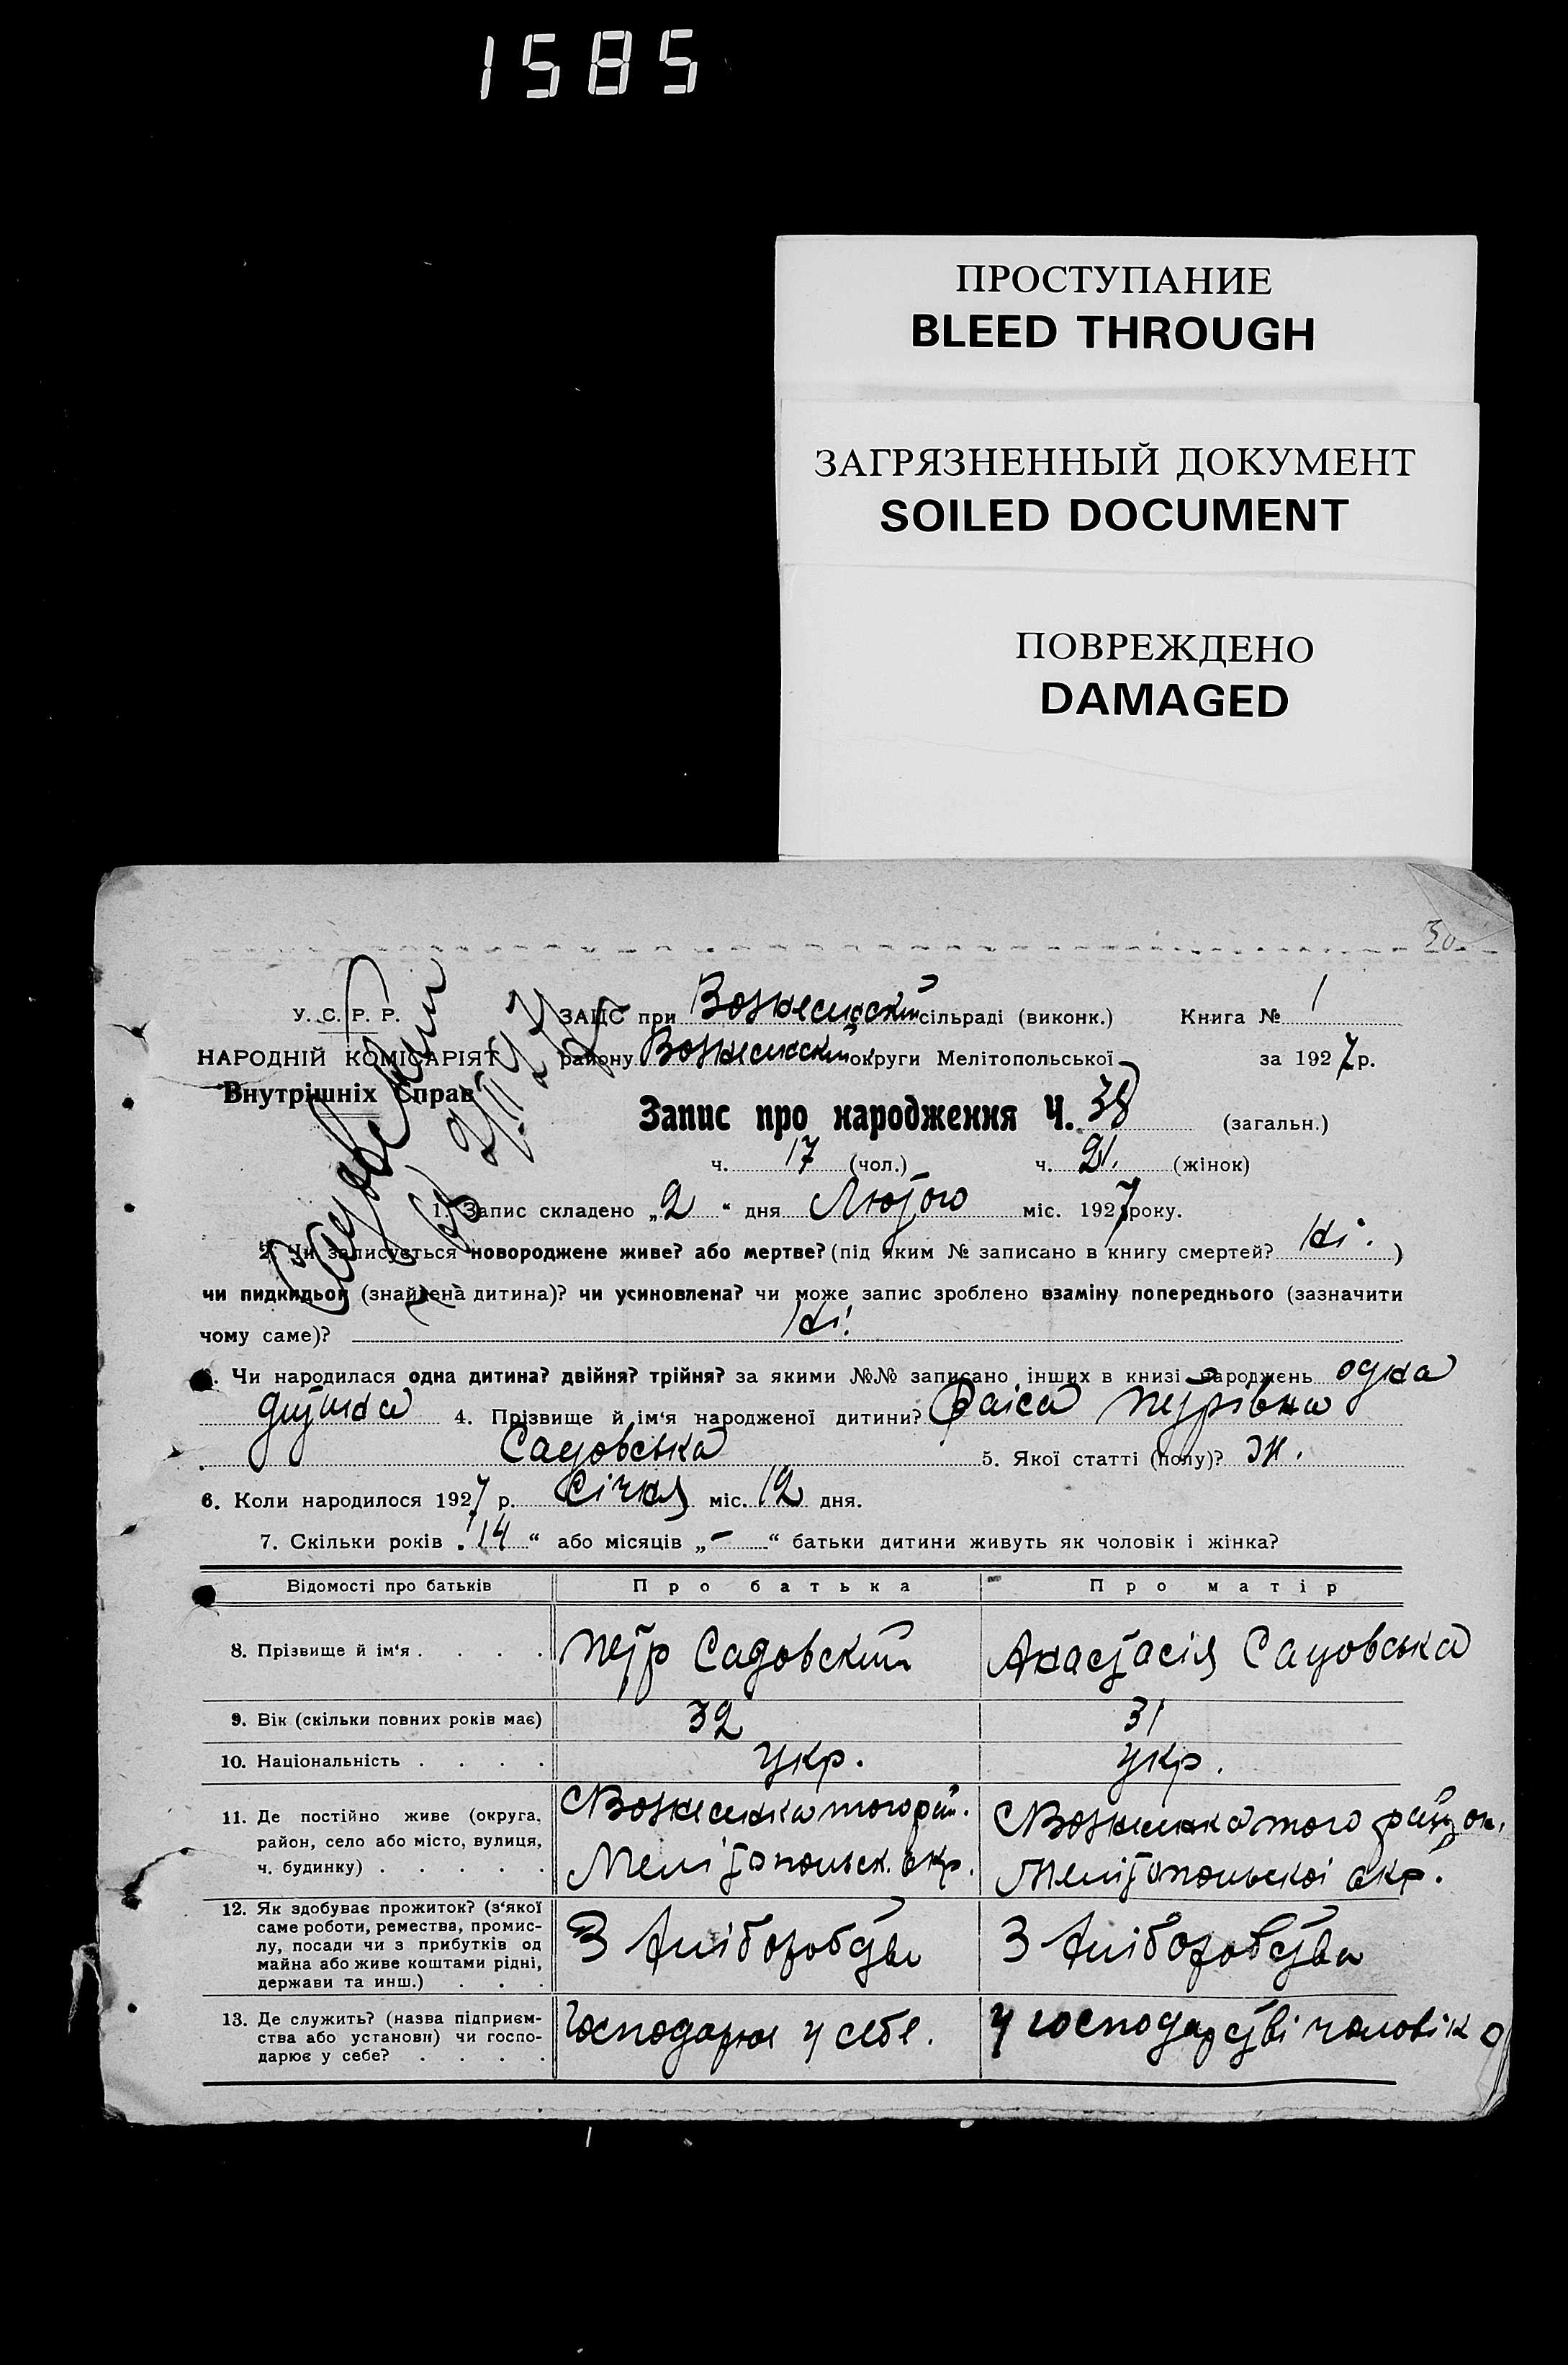 1585
ПРОСТУПАНИЕ
BLEED THROUGH
ЗАГРЯЗНЕННЫЙ ДОКУМЕНТ
SOILED DOCUMENT
ПОВРЕЖДЕНО
DAMAGED
30
У. С. Р. Р.
НАРОДНІЙ КОМІСАРІЯТ
Внутрішніх Справ
ЗАЦС при Вознесинский сільраді (виконк.) Книга № 1
району Вознесинский округи Мелітопольської за 1927 р.
Запис про народження Ч. 38 (загальн.)
ч. 17 (чол.) ч. 21. (жінок)
1. Запис складено „2“ дня Лютого міс. 1927 року.
2. Чи записується новороджене живе? або мертве? (під яким № записано в книгу смертей? Ні.)
чи пидкидьок (знайдена дитина)? чи усиновлена? чи може запис зроблено взаміну попереднього (зазначити
чому саме)? Ні.
3. Чи народилася одна дитина? двійня? трійня? за якими №№ записано інших в книзі народжень одна
дитина 4. Прізвище й ім‘я народженої дитини? Раіса Петрівна
Садовська 5. Якої статті (полу)? Ж.
6. Коли народилося 1927 р. Січня міс. 12 дня.
7. Скільки років „14“ або місяців „-“ батьки дитини живуть як чоловік і жінка?
Відомості про батьків Про батька Про матір
8. Прізвище й ім‘я . . . . Петр Садовский Анастасія Садовська
9. Вік (скільки повних років має) 32 31
10. Національність . . . . укр. укр.
11. Де постійно живе (округа,
район, село або місто, вулиця,
ч. будинку) . . . . .
с Вознесинка того рай.
Мелітопольск. окр.
с Вознесинка того район.
Мелітопольскоі окр.
12. Як здобуває прожиток? (з‘якої
саме роботи, ремества, промис-
лу, посади чи з прибутків од
майна або живе коштами рідні,
держави та инш.) . . .
З хліборобства
З хліборобства
13. Де служить? (назва підприєм-
ства або установи) чи госпо-
дарює у себе? . . . .
Господарює у себе.
У господарстві чоловіка